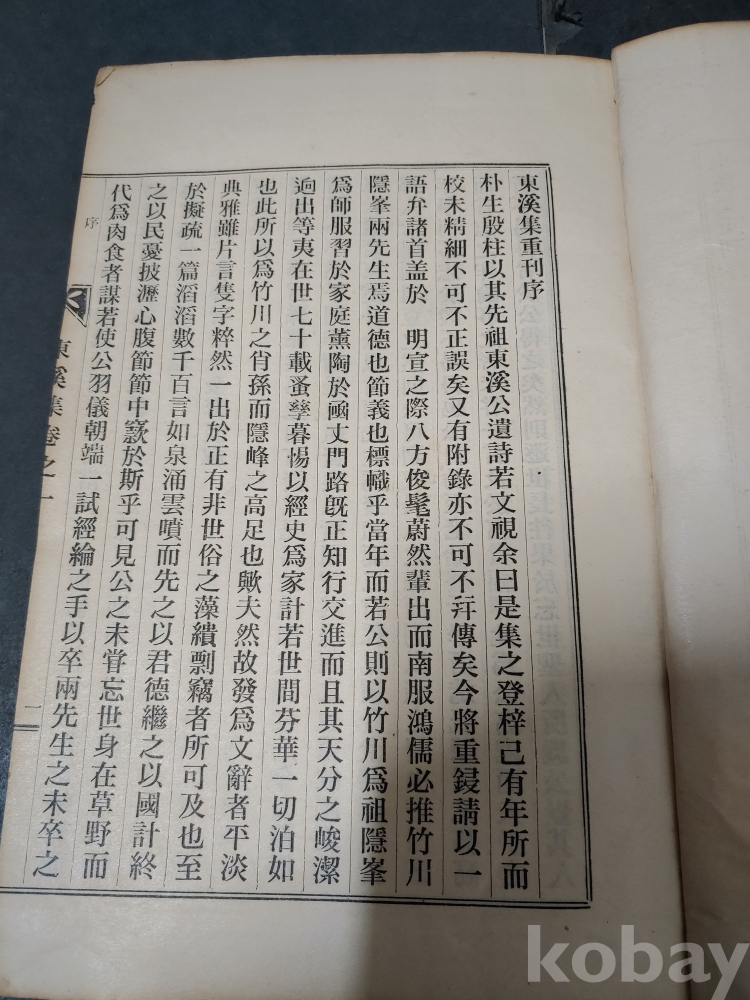 東溪集重刊序
朴生殷柱以其先祖東溪公遺詩若文視余曰是集之登梓已有年所而
校未精細不可不正誤矣又有附錄亦不可不幷傳矣今將重鋟請以一
語弁諸首盖於 明宣之際八方俊髦蔚然輩出而南服鴻儒必推竹川
隱峯兩先生焉道德也節義也標幟乎當年而若公則以竹川爲祖隱峯
爲師服習於家庭薰陶於函丈門路旣正知行交進而且其天分之峻潔
逈出等夷在世七十載蚤孳暮惕以經史爲家計若世間芬華一切泊如
也此所以爲竹川之肖孫而隱峰之高足也歟夫然故發爲文辭者平淡
典雅雖片言隻字粹然一出於正有非世俗之藻繢剽竊者所可及也至
於擬疏一篇滔滔數千百言如泉涌雲噴而先之以君德繼之以國計終
之以民憂披瀝心腹節節中窾於斯乎可見公之未甞忘世身在草野而
代爲肉食者謀若使公羽儀朝端一試經綸之手以卒兩先生之未卒之
東溪集卷之一
序
一
kobay